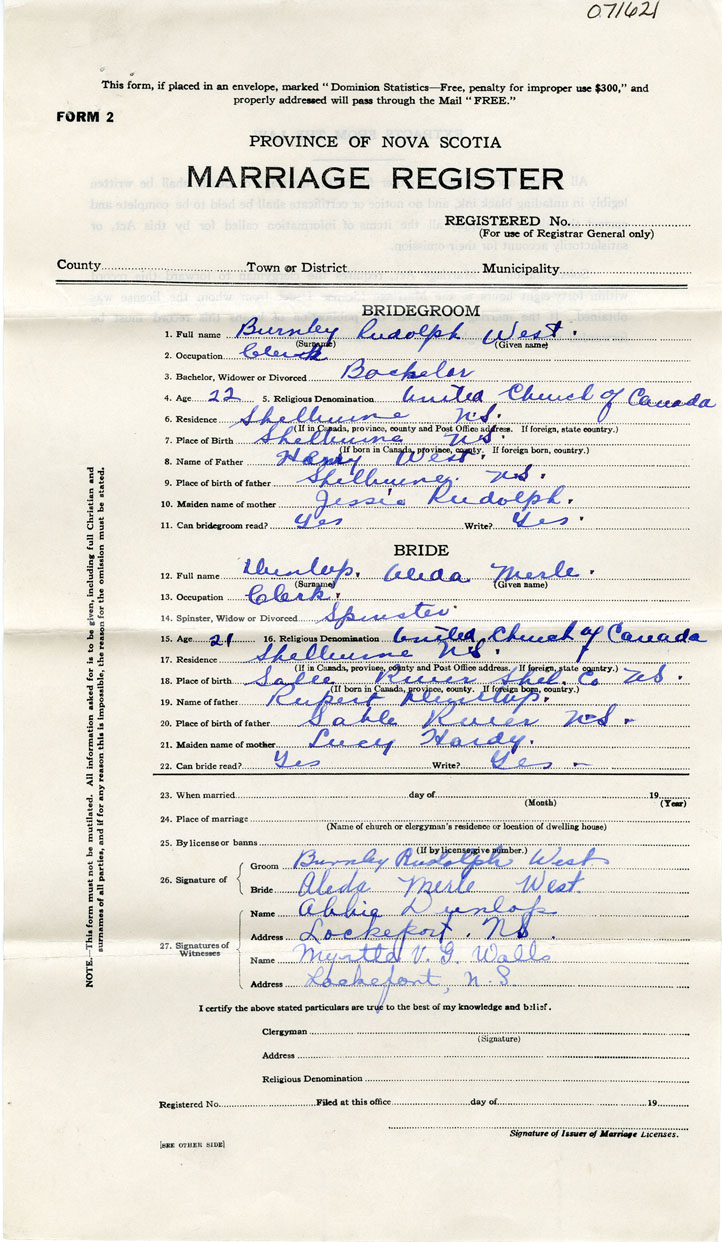 071621
This form, if placed in an envelope, marked "Dominion Statistics—Free, penalty for improper use $300," and
properly addressed will pass through the Mail "FREE."
FORM 2
PROVINCE OF NOVA SCOTIA
MARRIAGE REGISTER
REGISTERED No.
(For use of Registrar General only)
County Town or District Municipality
BRIDEGROOM
1. Full name Burnley Rudolph West.
(Surname) (Given name)
2. Occupation Clerk
3. Bachelor, Widower or Divorced Bachelor
4. Age 22 5. Religious Denomination United Church of Canada
6. Residence Shelburne N.S.
(If in Canada, province, county and Post Office address. If foreign, state country.)
7. Place of Birth Shelburne N.S.
(If born in Canada, province, county. If foreign born, country.)
8. Name of Father Harry West.
9. Place of birth of father Shelburne. N.S.
10. Maiden name of mother Jessie Rudolph.
11. Can bridegroom read? Yes Write? Yes.
BRIDE
12. Full name Dunlop. Aleda Merle.
(Surname) (Given name)
13. Occupation Clerk.
14. Spinster, Widow or Divorced Spinster.
15. Age 21 16. Religious Denomination United Church of Canada
17. Residence Shelburne N.S.
(If in Canada, province, county and Post Office address. If foreign, state country.)
18. Place of birth Sable River Shel. Co N.S.
(If born in Canada, province, county. If foreign born, country.)
19. Name of father Rupert Dunlop.
20. Place of birth of father Sable River N.S.
21. Maiden name of mother Lucy Hardy.
22. Can bride read? Yes Write? Yes
23. When married day of 19
(Month) (Year)
24. Place of marriage
(Name of church or clergyman's residence or location of dwelling house)
25. By license or banns
(If by license, give number.)
26. Signature of
Groom Burnley Rudolph West
Bride Aleda Merle West
27. Signatures of Witnesses
Name Abbie Dunlop
Address Lockeport. N.S.
Name Myrtle V. G. Walls
Address Lockeport, N.S.
I certify the above stated particulars are true to the best of my knowledge and belief.
Clergyman
(Signature)
Address
Religious Denomination
Registered No. Filed at this office day of 19
Signature of Issuer of Marriage Licenses.
[SEE OTHER SIDE]
NOTE.—This form must not be mutilated. All information asked for is to be given, including full Christian and
surnames of all parties, and if for any reason this is impossible, the reason for the omission must be stated.